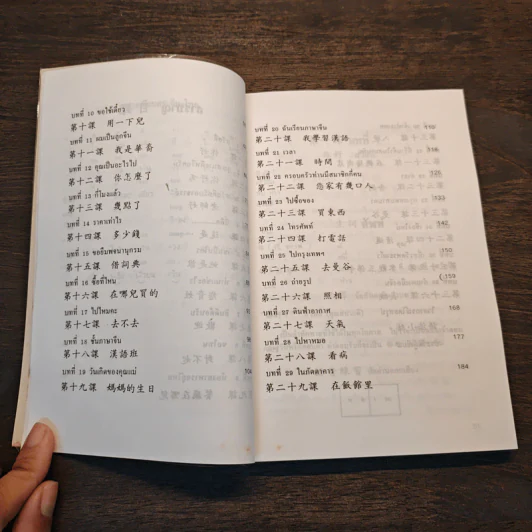 บทที่ 10 ขอใช้เดี๋ยว
第十課 用一下兒
บทที่ 11 ผมเป็นลูกจีน
第十一課 我是華裔
บทที่ 12 คุณเป็นอะไรไป
第十二課 你怎麼了
บทที่ 13 กี่โมงแล้ว
第十三課 幾點了
บทที่ 14 ราคาเท่าไร
第十四課 多少錢
บทที่ 15 ขอยืมพจนานุกรม
第十五課 借詞典
บทที่ 16 ซื้อที่ไหน
第十六課 在哪兒買的
บทที่ 17 ไปไหมคะ
第十七課 去不去
บทที่ 18 ชั้นภาษาจีน
第十八課 漢語班
บทที่ 19 วันเกิดของคุณแม่
第十九課 媽媽的生日
บทที่ 20 ฉันเรียนภาษาจีน
第二十課 我學習漢語
บทที่ 21 เวลา
第二十一課 時間
บทที่ 22 ครอบครัวท่านมีสมาชิกกี่คน
第二十二課 您家有幾口人
บทที่ 23 ไปซื้อของ
第二十三課 買東西
บทที่ 24 โทรศัพท์
第二十四課 打電話
บทที่ 25 ไปกรุงเทพฯ
第二十五課 去曼谷
บทที่ 26 ถ่ายรูป
第二十六課 照相
บทที่ 27 ดินฟ้าอากาศ 168
第二十七課 天氣
บทที่ 28 ไปหาหมอ 177
第二十八課 看病
บทที่ 29 ในภัตตาคาร 184
第二十九課 在飯館里